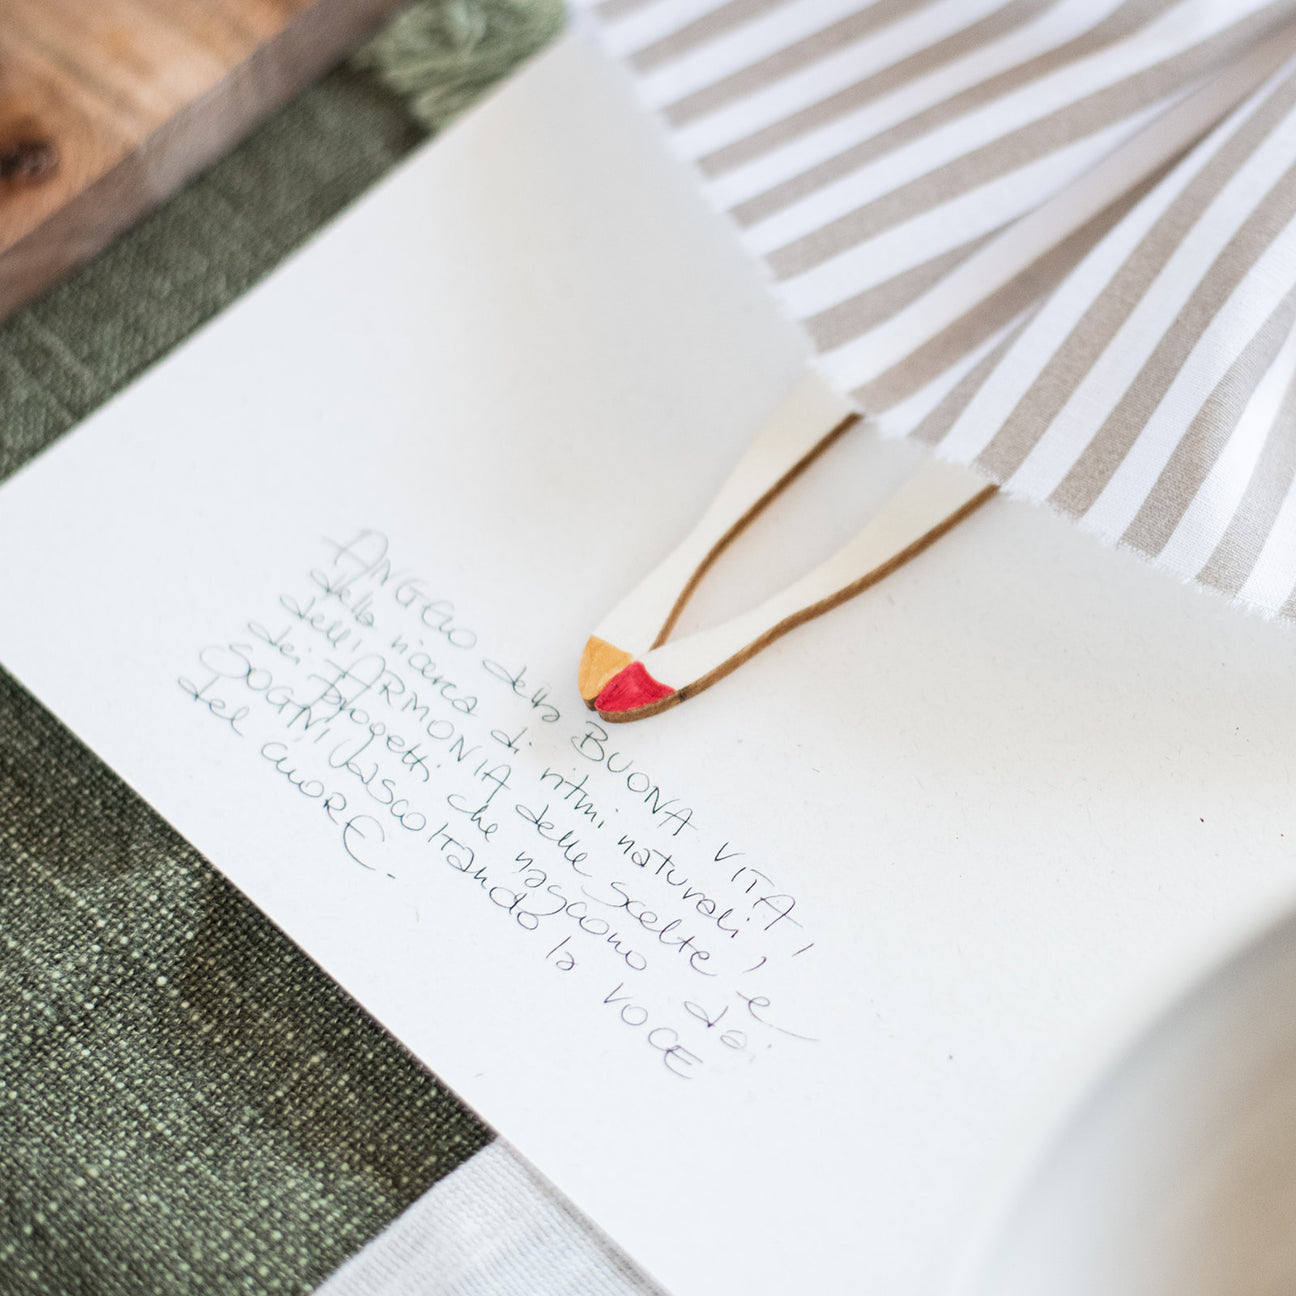 ANGELO della BUONA VITA,
della ricerca di ritmi naturali,
dell'ARMONIA delle scelte, e
dei Progetti che nascono dai
SOGNI, ascoltando la VOCE
del CUORE.